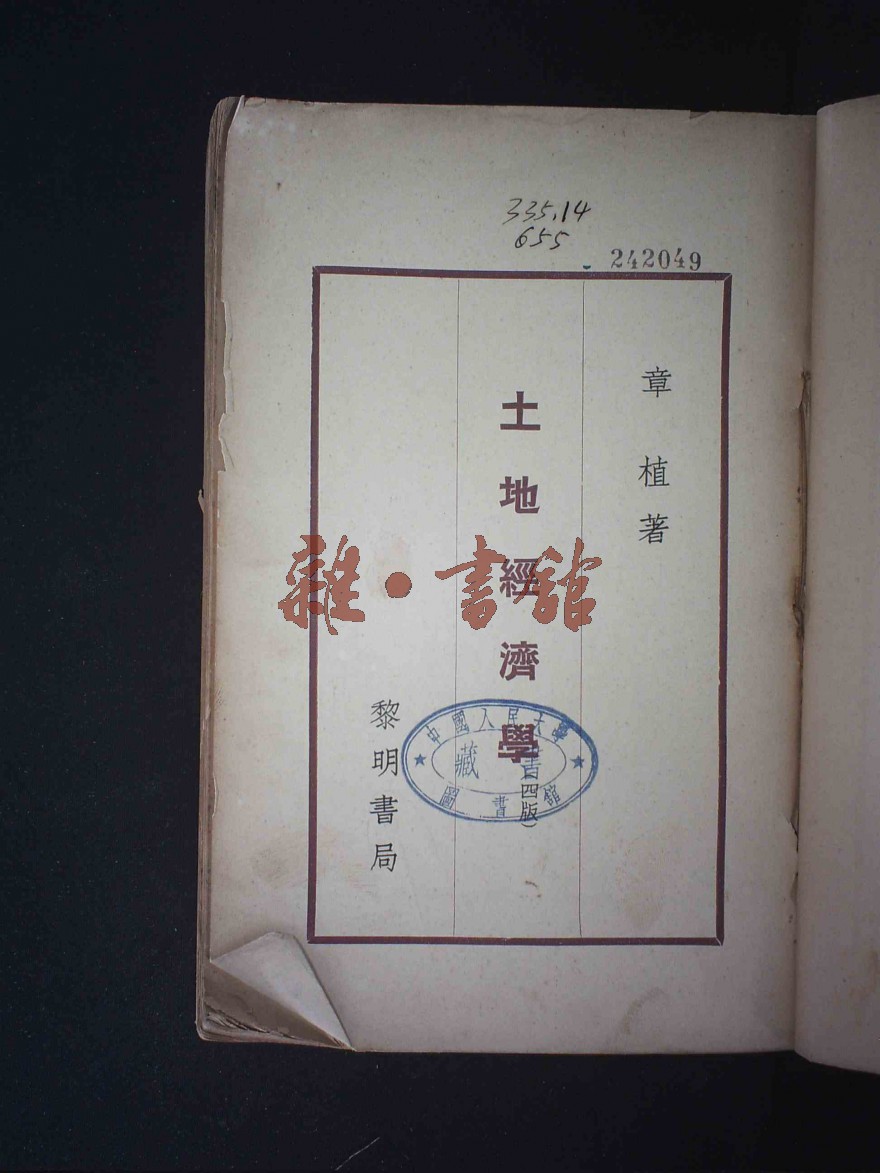 335.14
655
242049
章植著
土地經濟學
(四版)
黎明書局
中國人民大學
藏書
圖書館
雜·書館